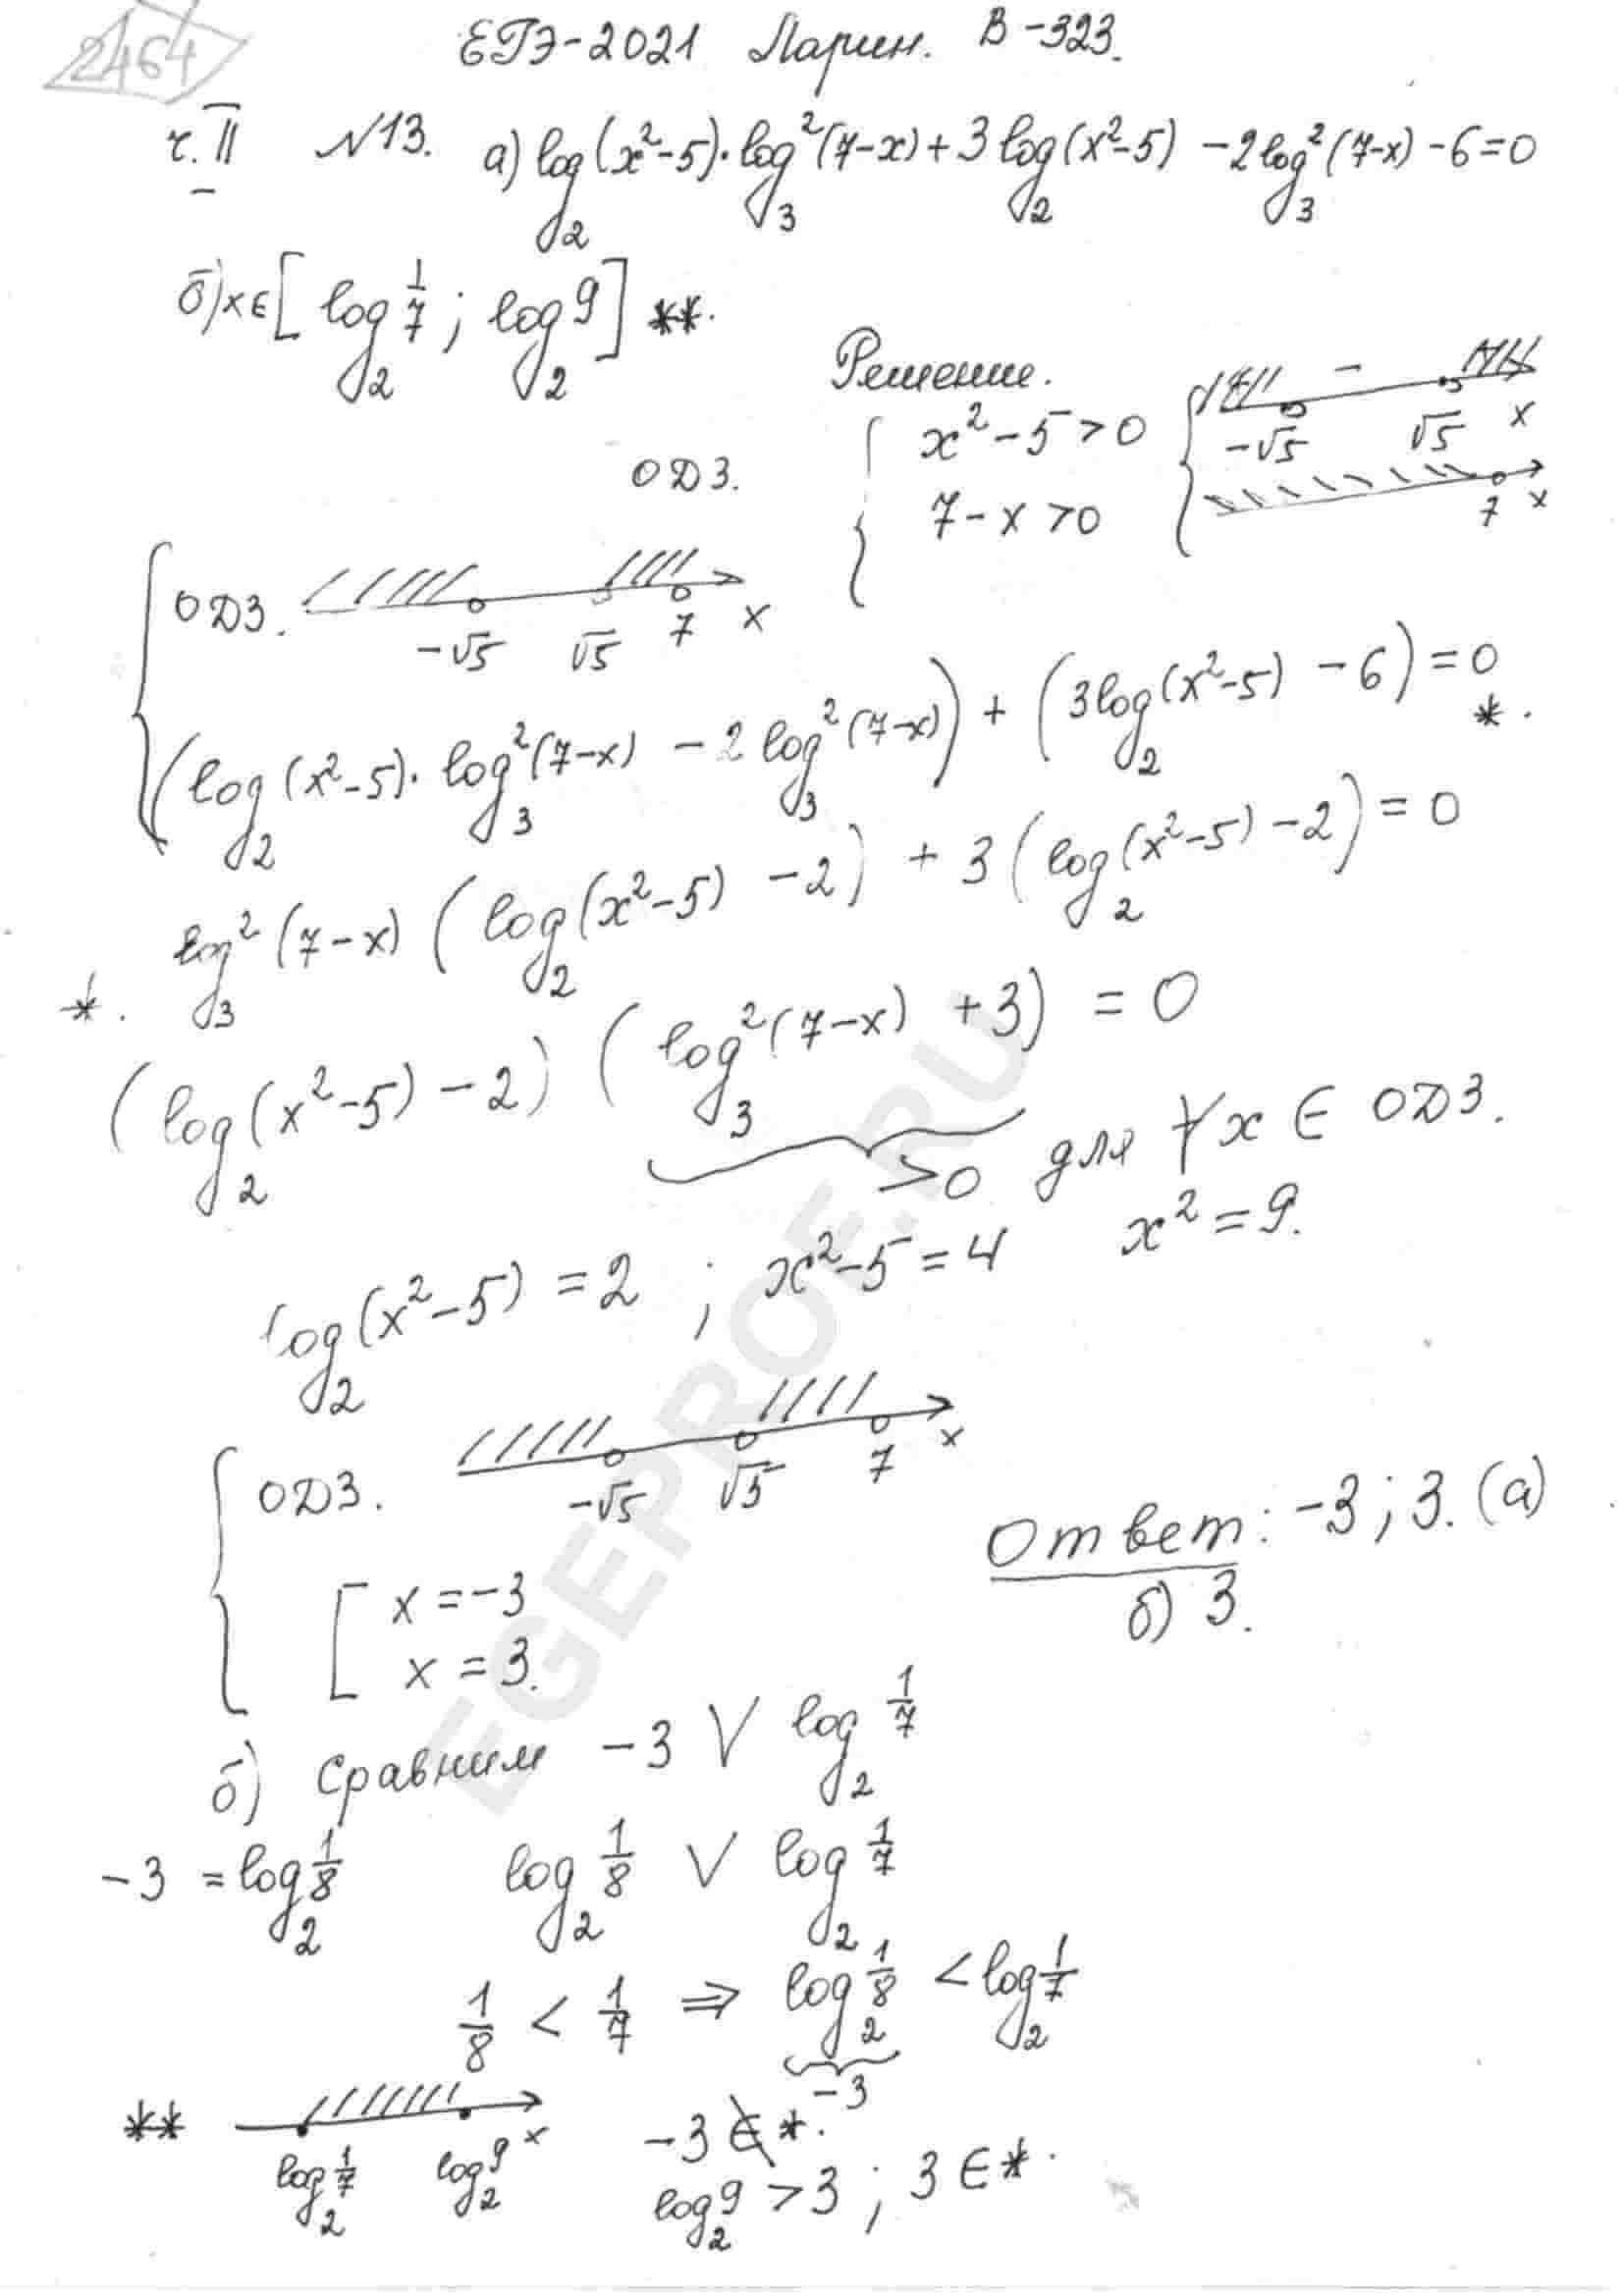 2464
ЕГЭ-2021 Ларин. В-323.
ч. II №13. а) log₂(x²-5)·log₃²(7-x)+3log₂(x²-5) -2log₃²(7-x) -6=0
б) x∈[log₂ 1/7 ; log₂ 9] **.
Решение.
ОДЗ. { x²-5>0 { -√5 - √5 x
7-x>0 7 x
{ ОДЗ. -√5 √5 7 x
(log₂(x²-5)·log₃²(7-x) -2log₃²(7-x)) + (3log₂(x²-5) -6)=0 *.
*. log₃²(7-x)(log₂(x²-5) -2) + 3(log₂(x²-5) -2)=0
(log₂(x²-5) -2)(log₃²(7-x) +3) = 0
>0 для ∀x ∈ ОДЗ.
log₂(x²-5) =2 ; x²-5=4 x²=9.
{ ОДЗ. -√5 √5 7 x
[ x=-3
x=3.
Ответ: -3; 3. (а)
б) 3.
б) Сравним -3 ∨ log₂ 1/7
-3 = log₂ 1/8 log₂ 1/8 ∨ log₂ 1/7
1/8 < 1/7 ⇒ log₂ 1/8 < log₂ 1/7
-3
** log₂ 1/7 log₂ 9 x -3 ∉ *.
log₂ 9 >3 ; 3 ∈ *.
EGEPROF.RU